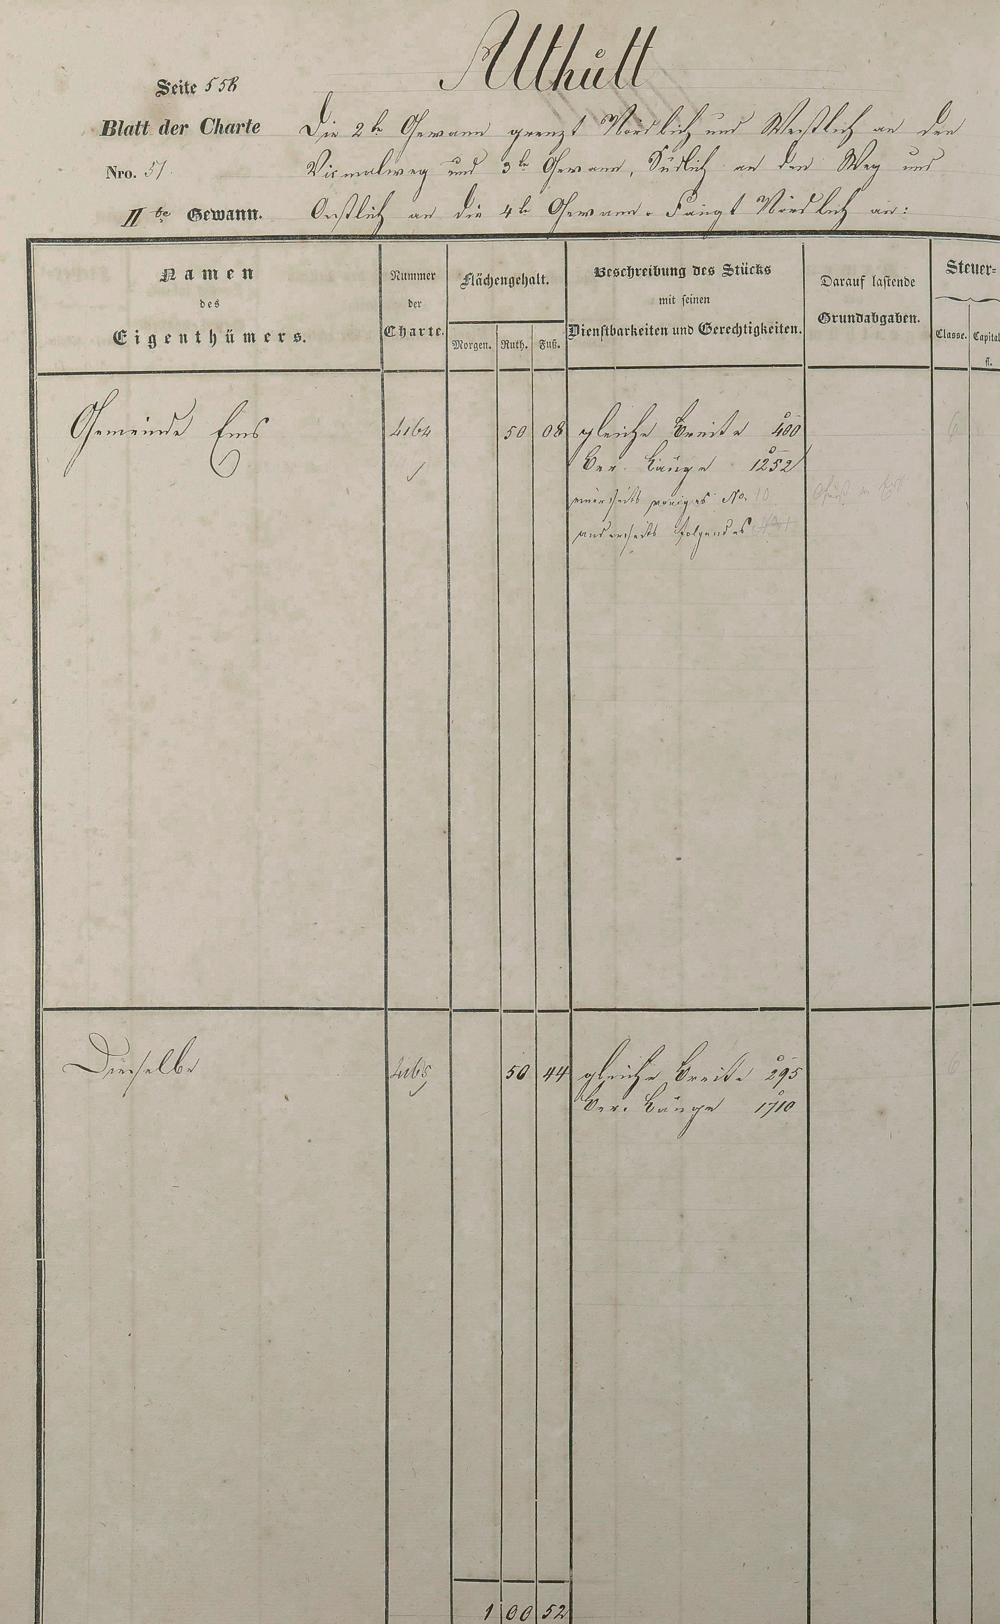 Althütt
Seite 558
Blatt der Charte
Nro. 51.
II te Gewann.
Die 2te Gewann grenzt Nördlich und Westlich an den
Vicinalweg und 3te Gewann, Südlich an den Weg und
Oestlich an die 4te Gewann. Fängt Nördlich an:
Namen
des
Eigenthümers.
Nummer
der
Charte.
Flächengehalt.
Morgen. Ruth. Fuß.
Beschreibung des Stücks
mit seinen
Dienstbarkeiten und Gerechtigkeiten.
Darauf lastende
Grundabgaben.
Steuer-
Classe. Capital
fl.
Gemeinde Ems 4164 50 08 gleiche Breite 400
ber. Länge 1252
einerseits voriges No. 10
anderseits folgendes
Dieselbe 4165 50 44 gleiche Breite 295
ber. Länge 1710
1 00 52